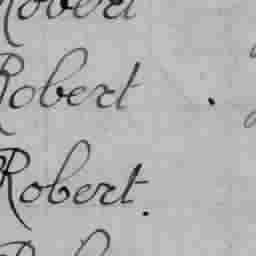 Robert
Robert .
Robert.